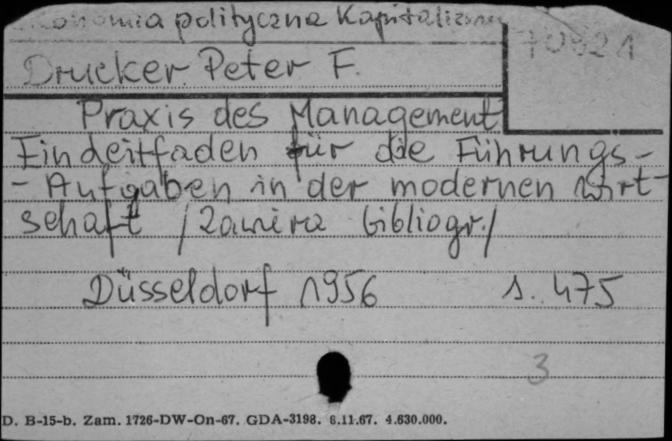 Ekonomia polityczna Kapitalizmu
70821
Drucker Peter F.
Praxis des Management
Ein deitfaden für die Führungs-
- Aufgaben in der modernen Wirt-
schaft /Zawiera bibliogr./
Düsseldorf 1956 s. 475
3
D. B-15-b. Zam. 1726-DW-On-67. GDA-3198. 8.11.67. 4.630.000.